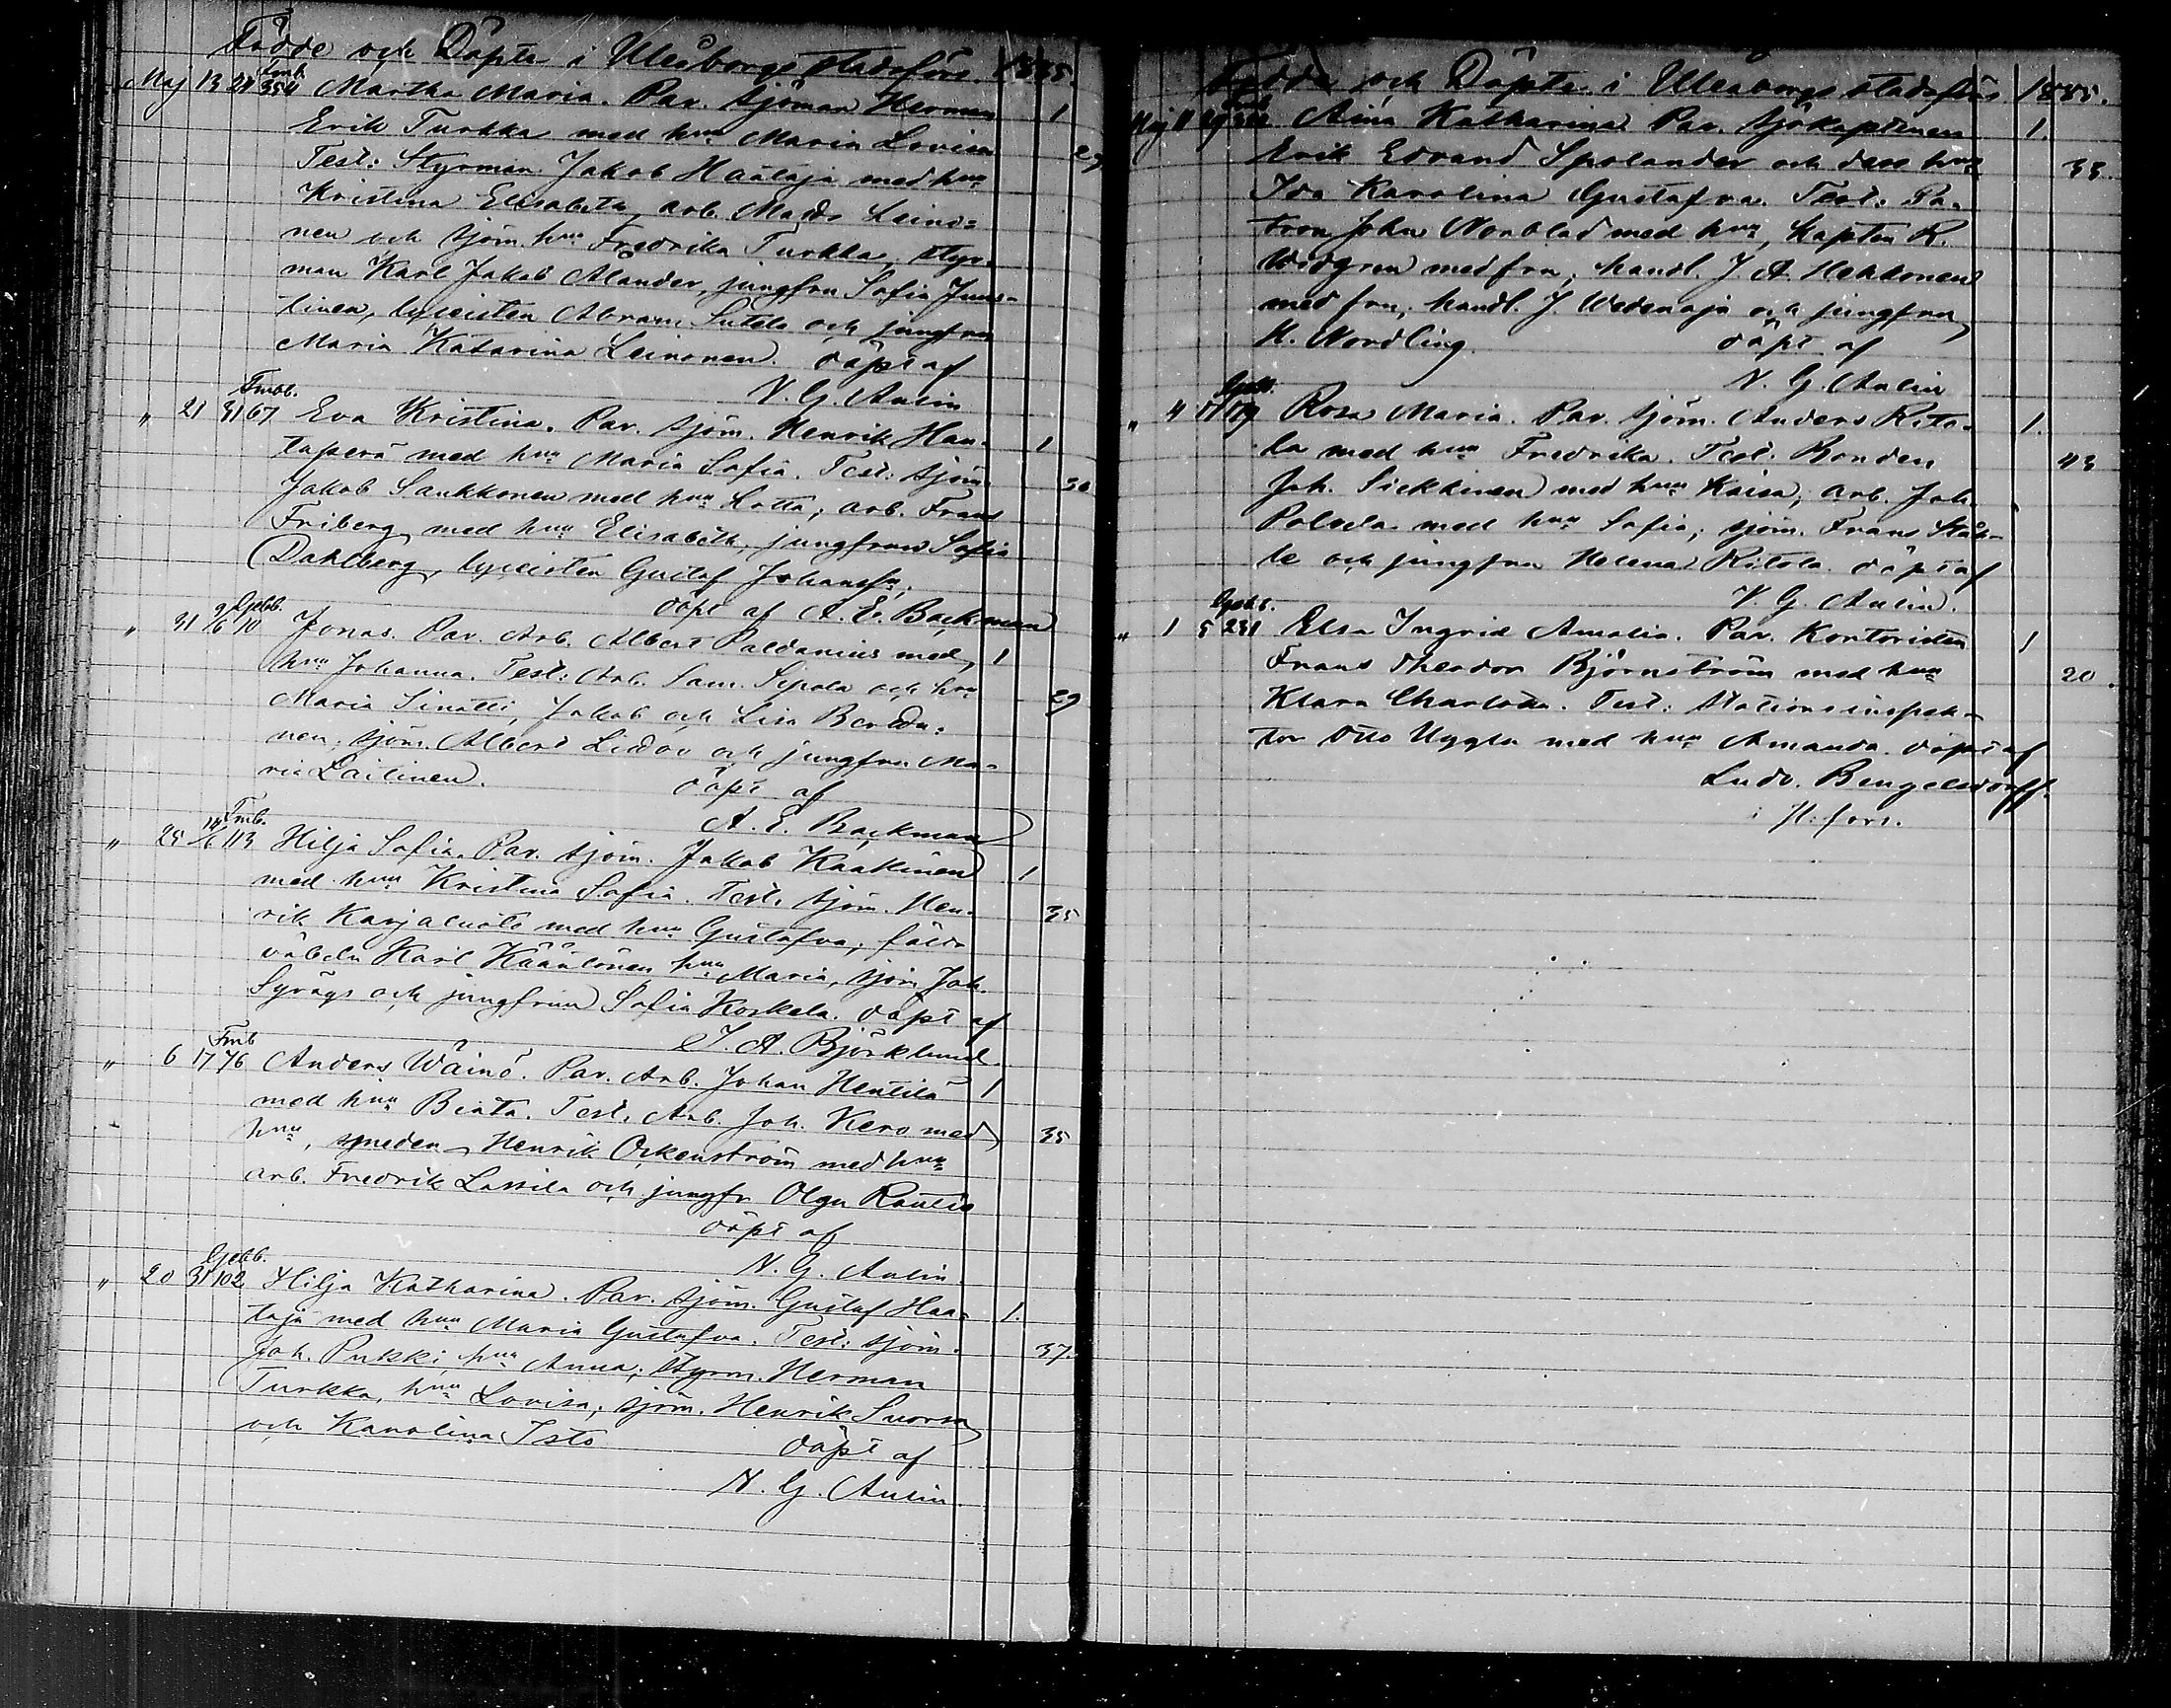 Födde och Döpte i Uleåborgs stadsförs. 1885.
Fmb.
Maj 13 24 354 Martha Maria. Par. sjöman Herman 1
Erik Turkka med hu Maria Lovisa 29
Test: Styrman Jakob Haataja med hu
Kristina Elisabeth, arb. Matts Leino=
nen och sjöm. hu Fredrika Turkka, styr-
man Karl Jakob Alander, jungfru Sofia
linen, lyceisten Abram Sutela och jungfru
Maria Katarina Leinonen. döpt af
N. G. Aulin
Fmbb.
" 21 31 67 Eva Kristina. Par. sjöm. Henrik Han- 1
tapera med hu Maria Sofia. Test: sjöm. 30
Jakob Saukkonen med hu Lotta; arb. Frans
Friberg med hu Elisabeth, jungfrun Sofia
Dahlberg, lyceisten Gustaf Johansson;
döpt af A. E. Backman
Gjebb.
" 31 9/6 10 Jonas. Par. Arb. Albert Paldanius med 1
hu Johanna. Test: Arb. Sam. Sipola och hu 29
Maria Jakob och Lisa
nen; sjöm. Albert och jungfru Ma-
ria Laitinen. döpt af
A. E. Backman
Fmb.
" 25 14/6 113 Hilja Sofia. Par. sjöm. Jakob Kaakinen 1
med hu Kristina Sofia. Test. sjöm. Hen- 35
rik Karjaluoto med hu Gustafva; fält-
väbeln Karl hu Maria, sjöm Joh.
Syväys och jungfrun Sofia Koskela. döpt af
J. A. Björklund.
Fmb
" 6 17 76 Anders Wäinö. Par. Arb. Johan Hentilä 1
med hu Beata. Test. Arb. Joh. Kero med 35
hu, smeden Henrik Ockenström med hu
arb. Fredrik Lassila och jungfr Olga Rautio
döpt af
N. G. Aulin
Gjebb.
" 20 31 102 Hilja Katharina. Par. sjöm. Gustaf Haa- 1.
taja med hu Maria Gustafva. Test: sjöm. 37.
Joh. Pukki, hu Anna; styrm. Herman
Turkka, hu Lovisa; sjöm. Henrik Suorsa
och Karolina Isto döpt af
N. G. Aulin.
Födde och Döpte i Uleåborgs stadsförs 1885.
Maj 11 Aina Katharina Par. sjökaptenen 1.
Erik Edvard Spolander och dess hu 33.
Ida Karolina Gustafva. Test. Pa-
tron John Norblad med hu, kapten R.
Widgren med fru, handl. J. A. Hekkonen
med fru, handl. J. Wedenoja och jungfru
H. Nordling. döpt af
N. G. Aulin
Gjebb.
" 4 17 179 Rosa Maria. Par. sjöm. Anders Rito- 1.
la med hu Fredrika. Test. Bonden 43
Joh. Siekkinen med hu Kaisa; arb. Joh.
Polvela med hu Sofia; sjöm. Frans Ståh-
le och jungfru Helena Ritola. döpt af
N. G. Aulin.
Gjebb.
" 1 5 231 Elsa Ingrid Amalia. Par. Kontoristen 1
Frans Theodor Björnström med hu 20.
Klara Charlotta. Test: Stationsinspek-
tor Otto Uggla med hu Amanda. döpt af
Ludv. Bengelsdorff.
i H:fors.